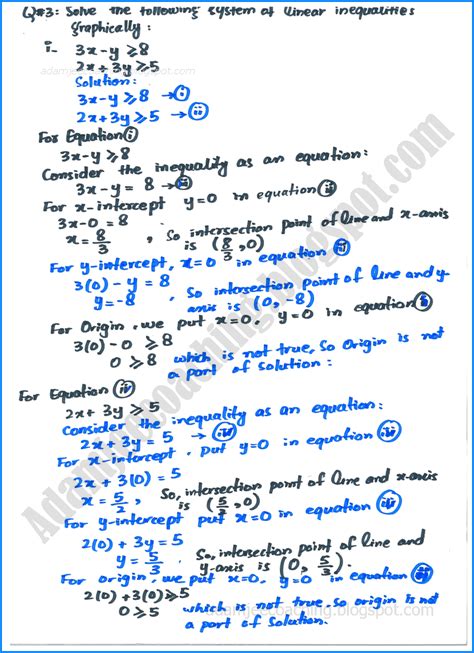 Q#3: Solve the following system of linear inequalities
graphically:
i- 3x-y ≥ 8
2x + 3y ≥ 5
adamjeecoaching.blogspot.com
Solution:
3x-y ≥ 8 → (i)
2x + 3y ≥ 5 → (ii)
For Equation (i)
3x-y ≥ 8
Consider the inequality as an equation:
3x-y = 8 →
For x-intercept y=0 in equation
3x-0 = 8
x = 8/3 , So intersection point of line and x-axis
is (8/3, 0)
For y-intercept, x=0 in equation
3(0) - y = 8
y = -8 , So intersection point of line and y-
axis is (0, -8)
For Origin, we put x=0, y=0 in equation
3(0) - 0 ≥ 8
0 ≥ 8 which is not true, So origin is not
a part of solution:
For Equation
2x + 3y ≥ 5
Consider the inequality as an equation:
2x + 3y = 5 →
For x-intercept, put y=0 in equation
2x + 3(0) = 5
x = 5/2 , So, intersection point of line and x-axis
is (5/2, 0)
For y-intercept put x=0 in equation
2(0) + 3y = 5
y = 5/3 . So, intersection point of line and
y-axis is (0, 5/3).
For origin, we put x=0, y=0 in equation
2(0) + 3(0) ≥ 5
0 ≥ 5 which is not true, so origin is not
a part of solution.
adamjeecoaching.blogspot.com
Adamjeecoaching.blogspot.com